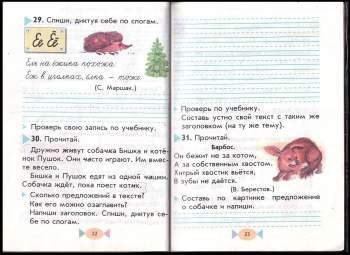 29. Спиши, диктуя себе по слогам.
Ее Ёё
Ель на ёжика похожа:
Ёж в иголках, ёлка – тоже.
(С. Маршак.)
Проверь свою запись по учебнику.
30. Прочитай.
Дружно живут собачка Бишка и котё-
нок Пушок. Они часто играют. Им вмес-
те весело.
Бишка и Пушок едят из одной чашки.
Собачка идёт, пока поест котик.
Сколько предложений в тексте?
Как его можно озаглавить?
Напиши заголовок. Спиши, диктуя се-
бе по слогам.
22
Проверь по учебнику.
Составь устно свой текст с таким же
заголовком (на ту же тему).
31. Прочитай.
Барбос.
Он бежит не за котом,
А за собственным хвостом.
Хитрый хвостик вьётся,
В зубы не даётся.
(В. Берестов.)
Составь по картинке предложение
о собачке и напиши.
23